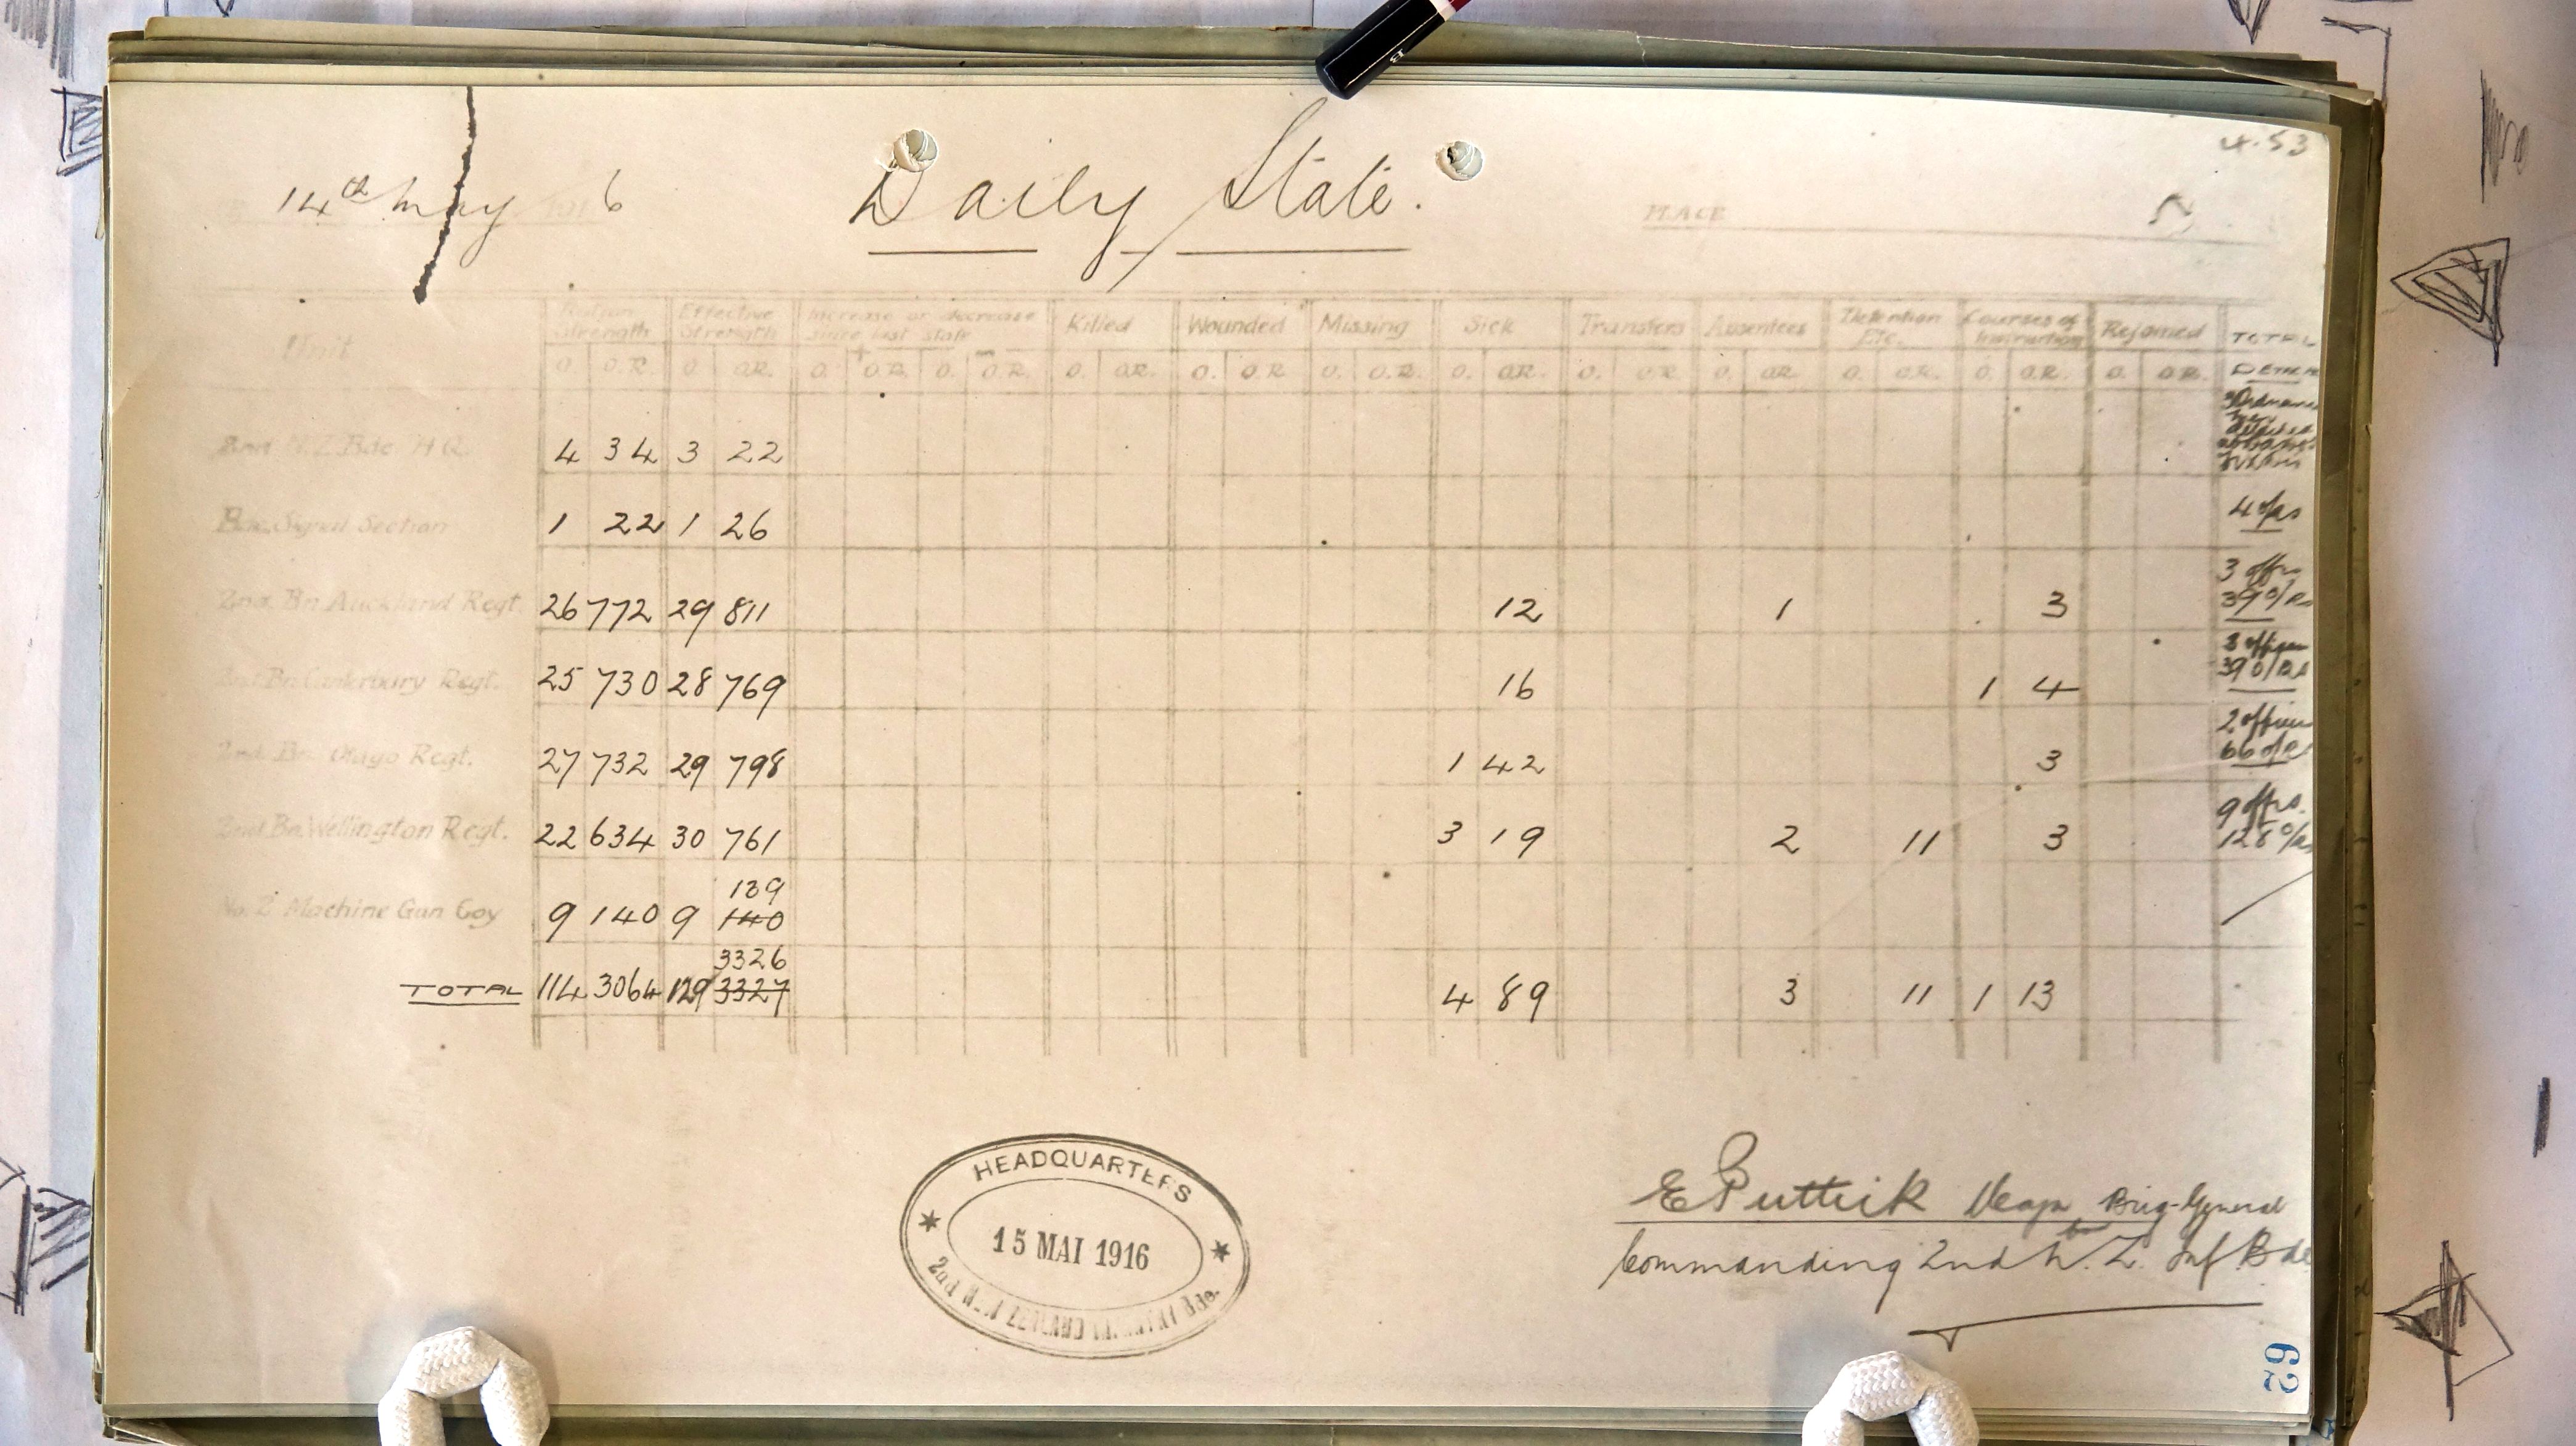 4.53
14th May 1916
Daily State.
PLACE
Unit Ration Strength Effective Strength Increase or decrease since last state Killed Wounded Missing Sick Transfers Absentees Detention Etc. Courses of Instruction Rejoined TOTAL
O. O.R. O. O.R. + O. O.R. - O. O.R. O. O.R. O. O.R. O. O.R. O. O.R. O. O.R. O. O.R. O. O.R. O. O.R. O. O.R.
2nd N.Z Bde. H.Q. 4 34 3 22
Signal Section 1 22 1 26 4 o/rs
2nd. Bn. Auckland Regt. 26 772 29 811 12 1 3 3 offrs 39 o/Rs
2nd Bn Canterbury Regt. 25 730 28 769 16 1 4 3 39 o/Rs
2nd Bn Otago Regt. 27 732 29 798 1 42 3 2 officers 66 o/R
2nd Bn. Wellington Regt. 22 634 30 761 3 19 2 11 3 9 offrs. 128 o/Rs
139
No. 2 Machine Gun Coy 9 140 9 140
3326
TOTAL 114 3064 129 3327 4 89 3 11 1 13
HEADQUARTERS
15 MAI 1916
2nd NEW ZEALAND INFANTRY Bde.
E Puttick Brig-General
for
Commanding 2nd N.Z. Inf. Bde
62